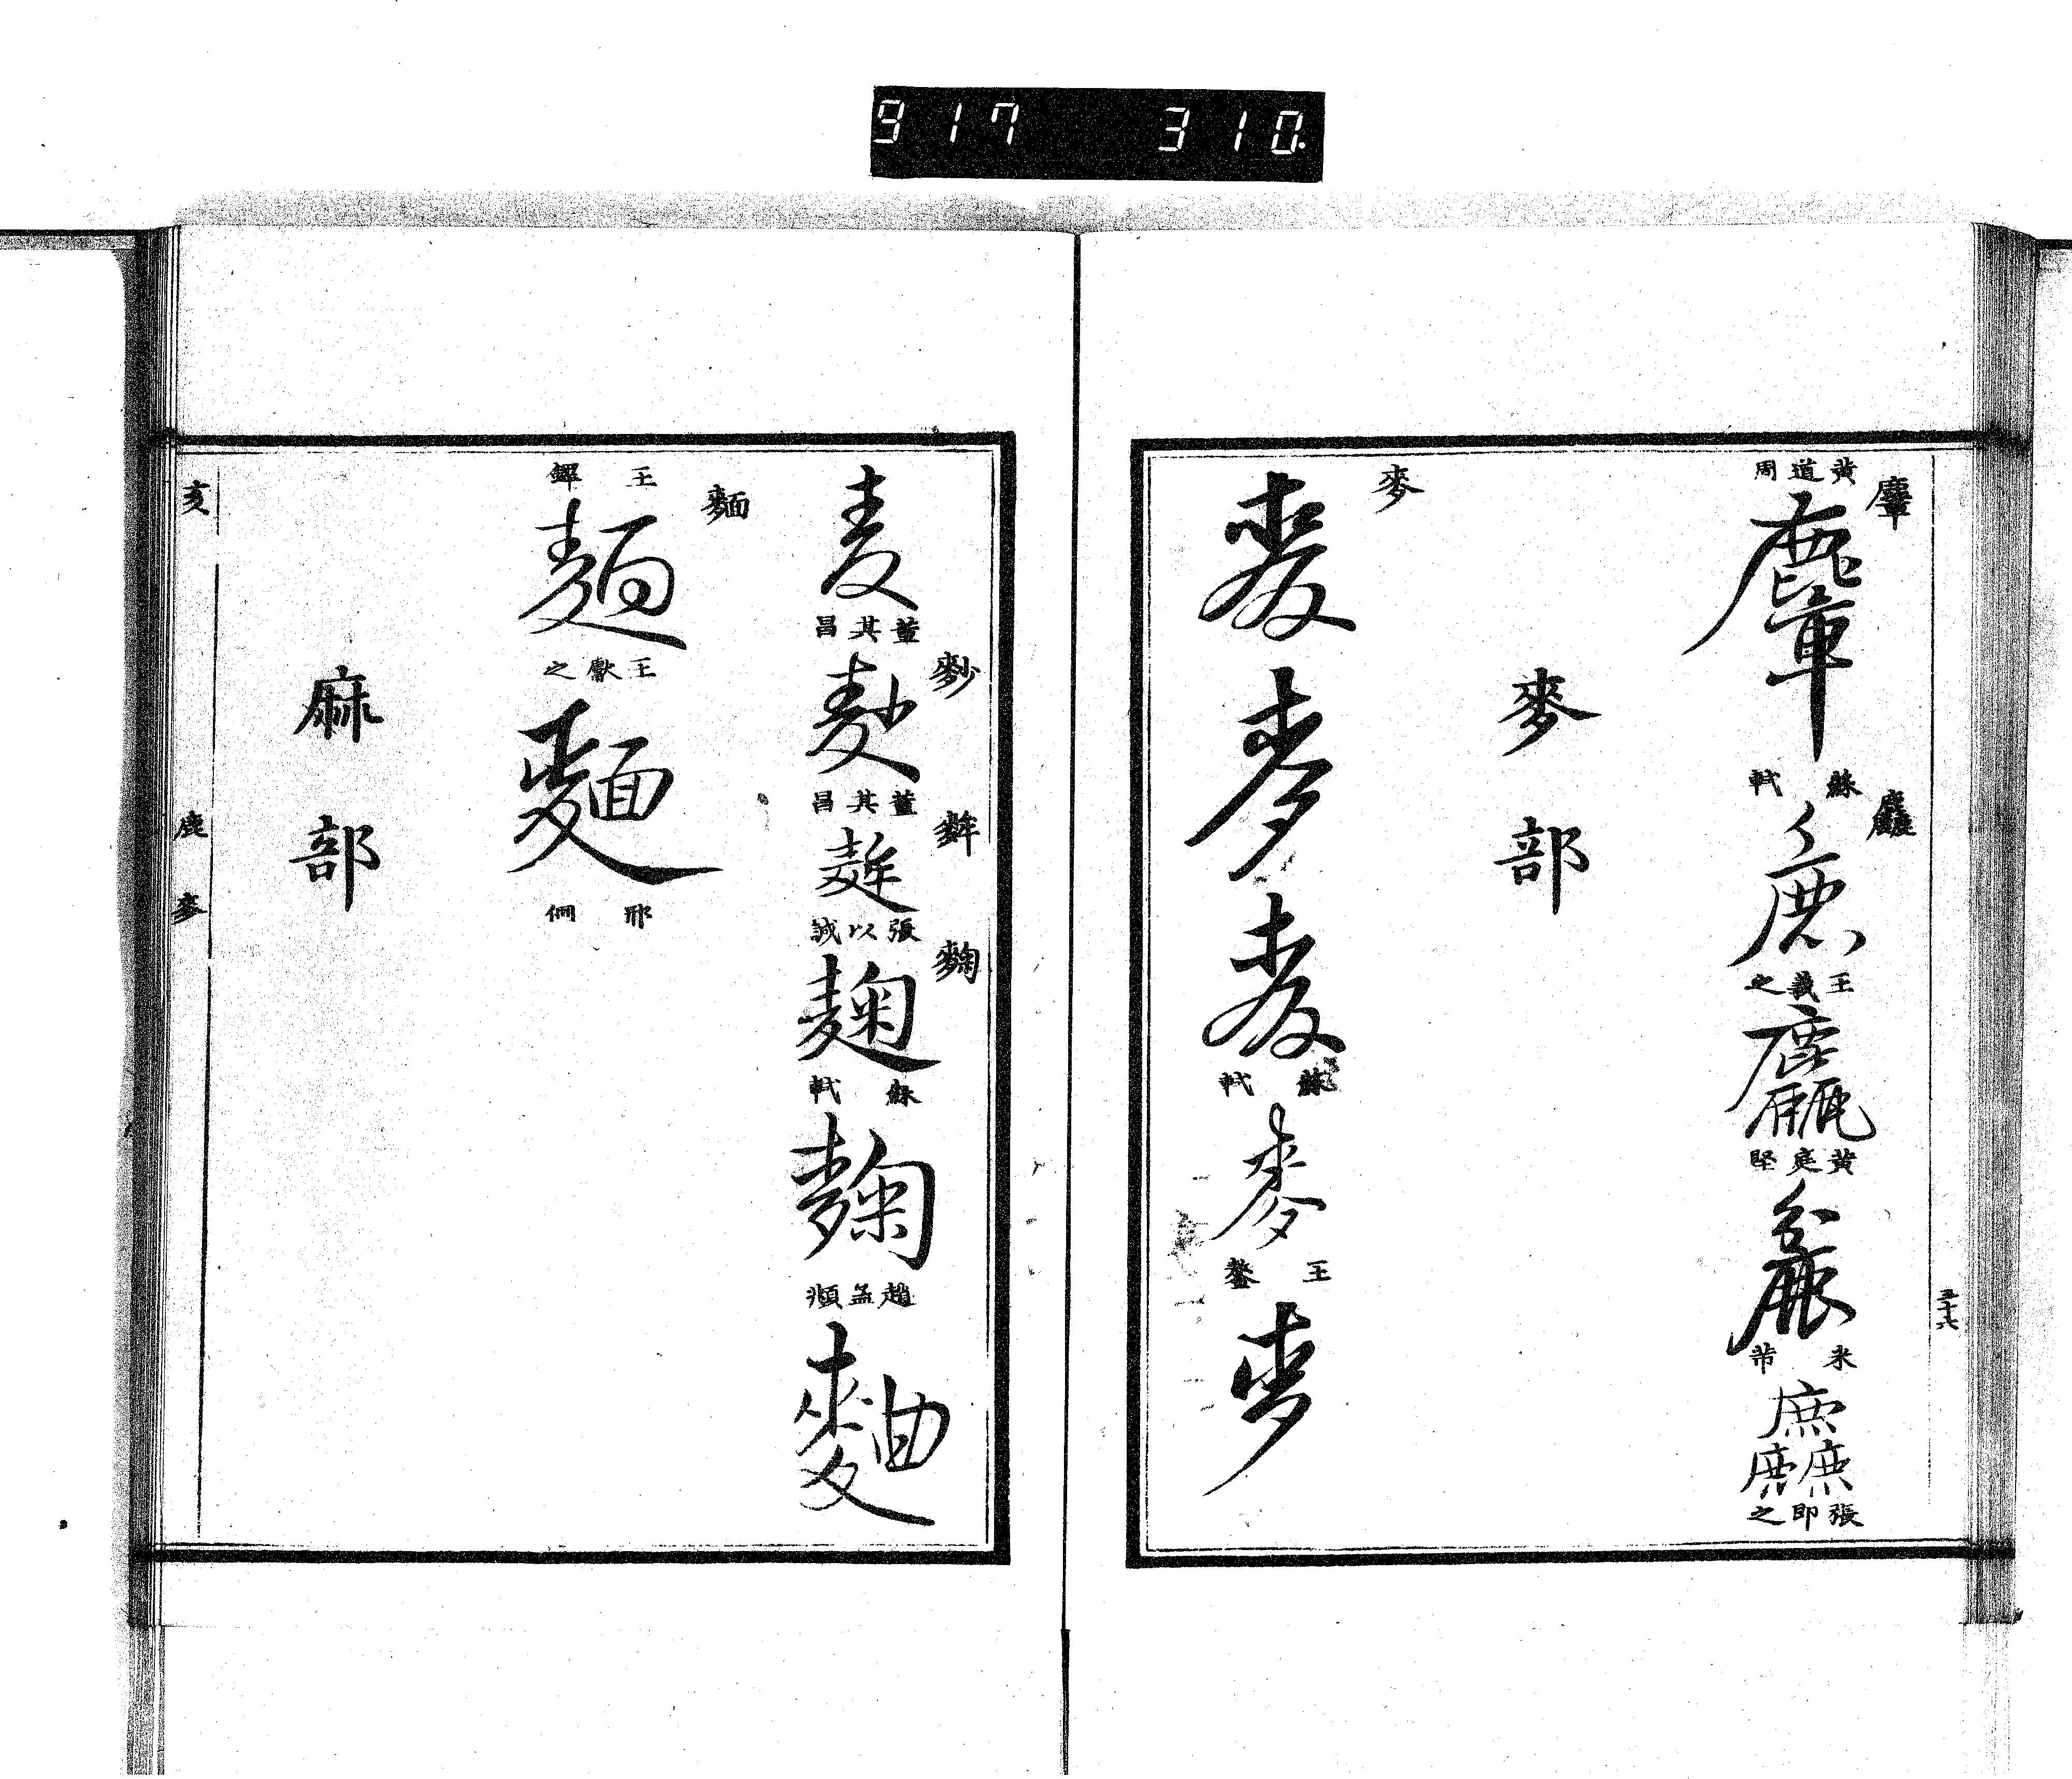 917 310
三十六
麞
黃道周
麞
蘇軾
麤
麤
王羲之
麤
黃庭堅
麤
米芾
麤
張即之
麥部
麥
麥
麥
麥
蘇軾
麥
王鏊
麥
麥
董其昌
麨
麨
董其昌
麰
麰
張以誠
麴
麴
蘇軾
麴
趙孟頫
麯
麵
王鐸
麵
王獻之
麵
邢侗
麻部
亥
鹿
麥